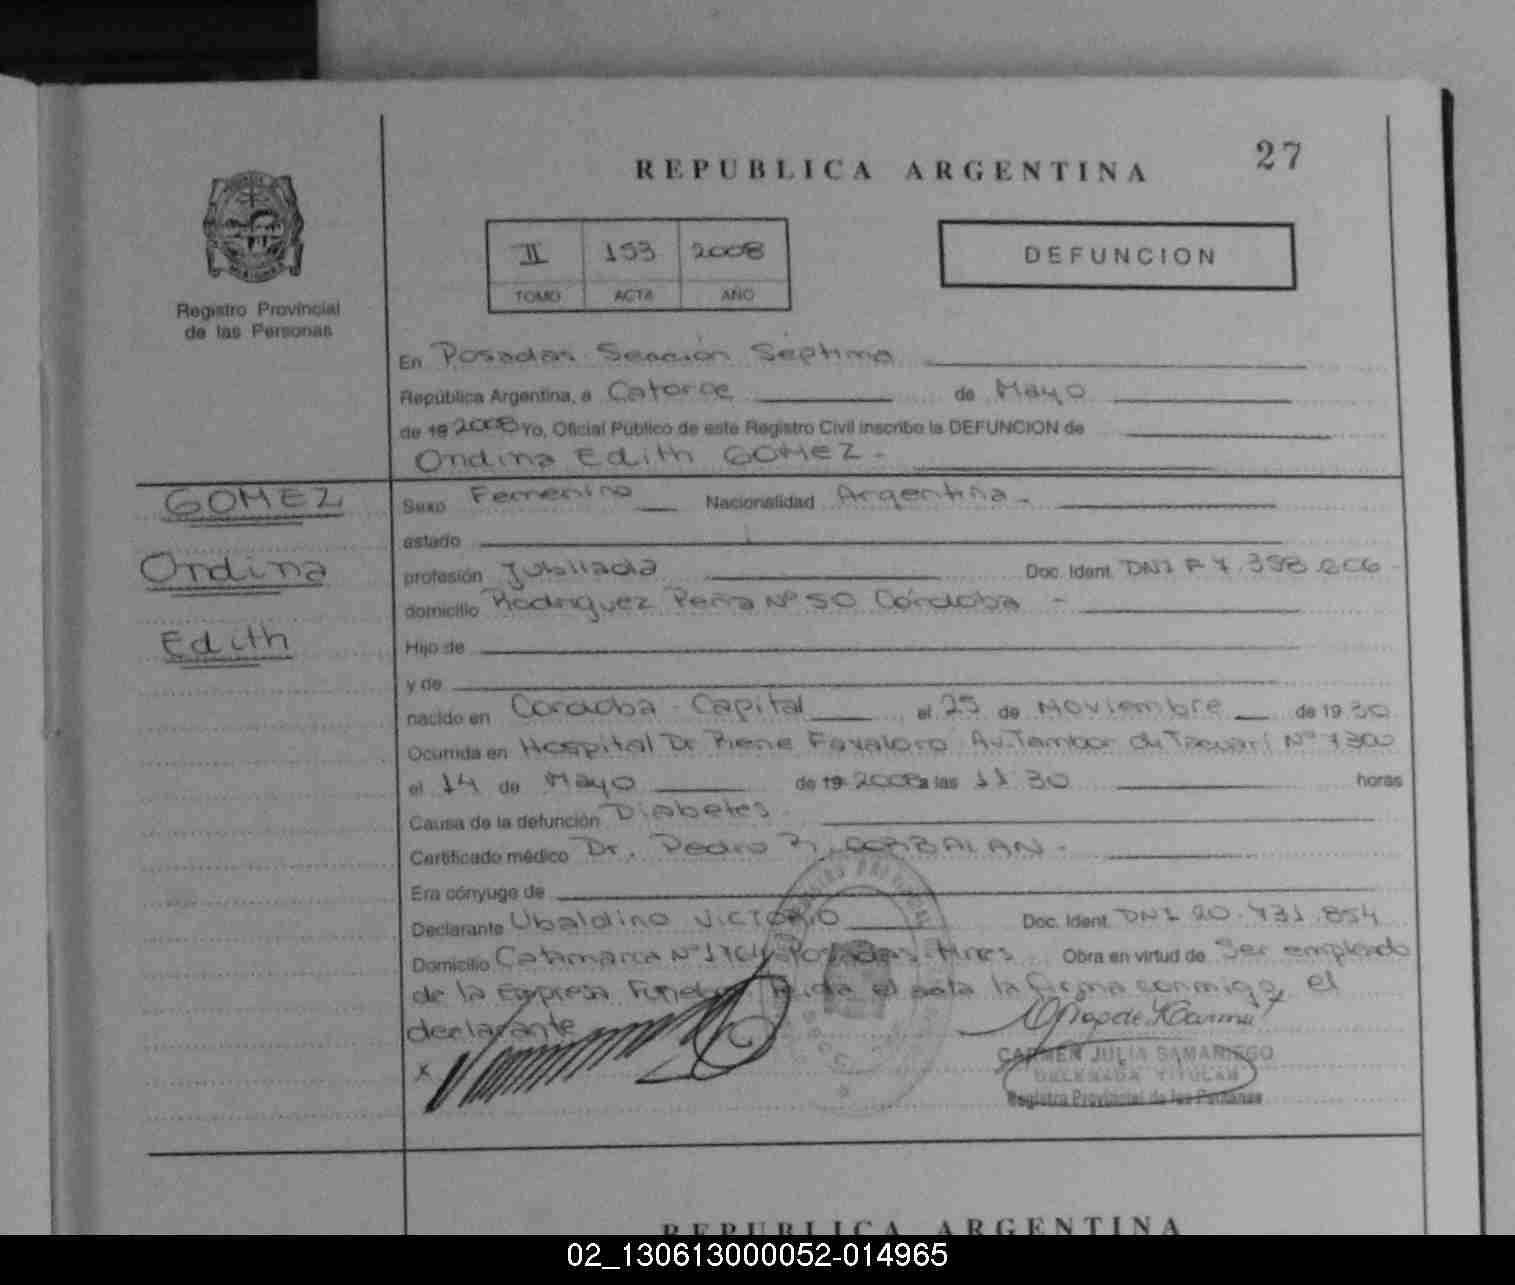 27
REPUBLICA ARGENTINA
II 153 2008
TOMO ACTA AÑO
DEFUNCION
Registro Provincial
de las Personas
En Posadas Sección Séptima
República Argentina, a Catorce de Mayo
de 19 2008 Yo, Oficial Público de este Registro Civil inscribo la DEFUNCION de
Ondina Edith GOMEZ.
GOMEZ
Ondina
Edith
Sexo Femenino Nacionalidad Argentina.
estado
profesión Jubilada Doc. Ident. DNI F 7.358.206
domicilio Rodriguez Peña Nº 50 Córdoba -
Hijo de
y de
nacido en Córdoba Capital el 25 de Noviembre de 19 30
Ocurrida en Hospital Dr Rene Favaloro Av. Tambor de Tacuarí Nº 7300
el 14 de Mayo de 19 2008 a las 11 30 horas
Causa de la defunción Diabetes
Certificado médico Dr. Pedro R. CORBALAN.
Era cónyuge de
Declarante Ubaldino VICTORIO Doc. Ident. DNI 20.731.854
Domicilio Catamarca Nº 1764 Posadas Mnes Obra en virtud de Ser empleado
de la Empresa el acta la firma conmigo, el
declarante
x
CARMEN JULIA SAMANIEGO
DELEGADA TITULAR
Registro Provincial de las Personas
REPUBLICA ARGENTINA
02_130613000052-014965